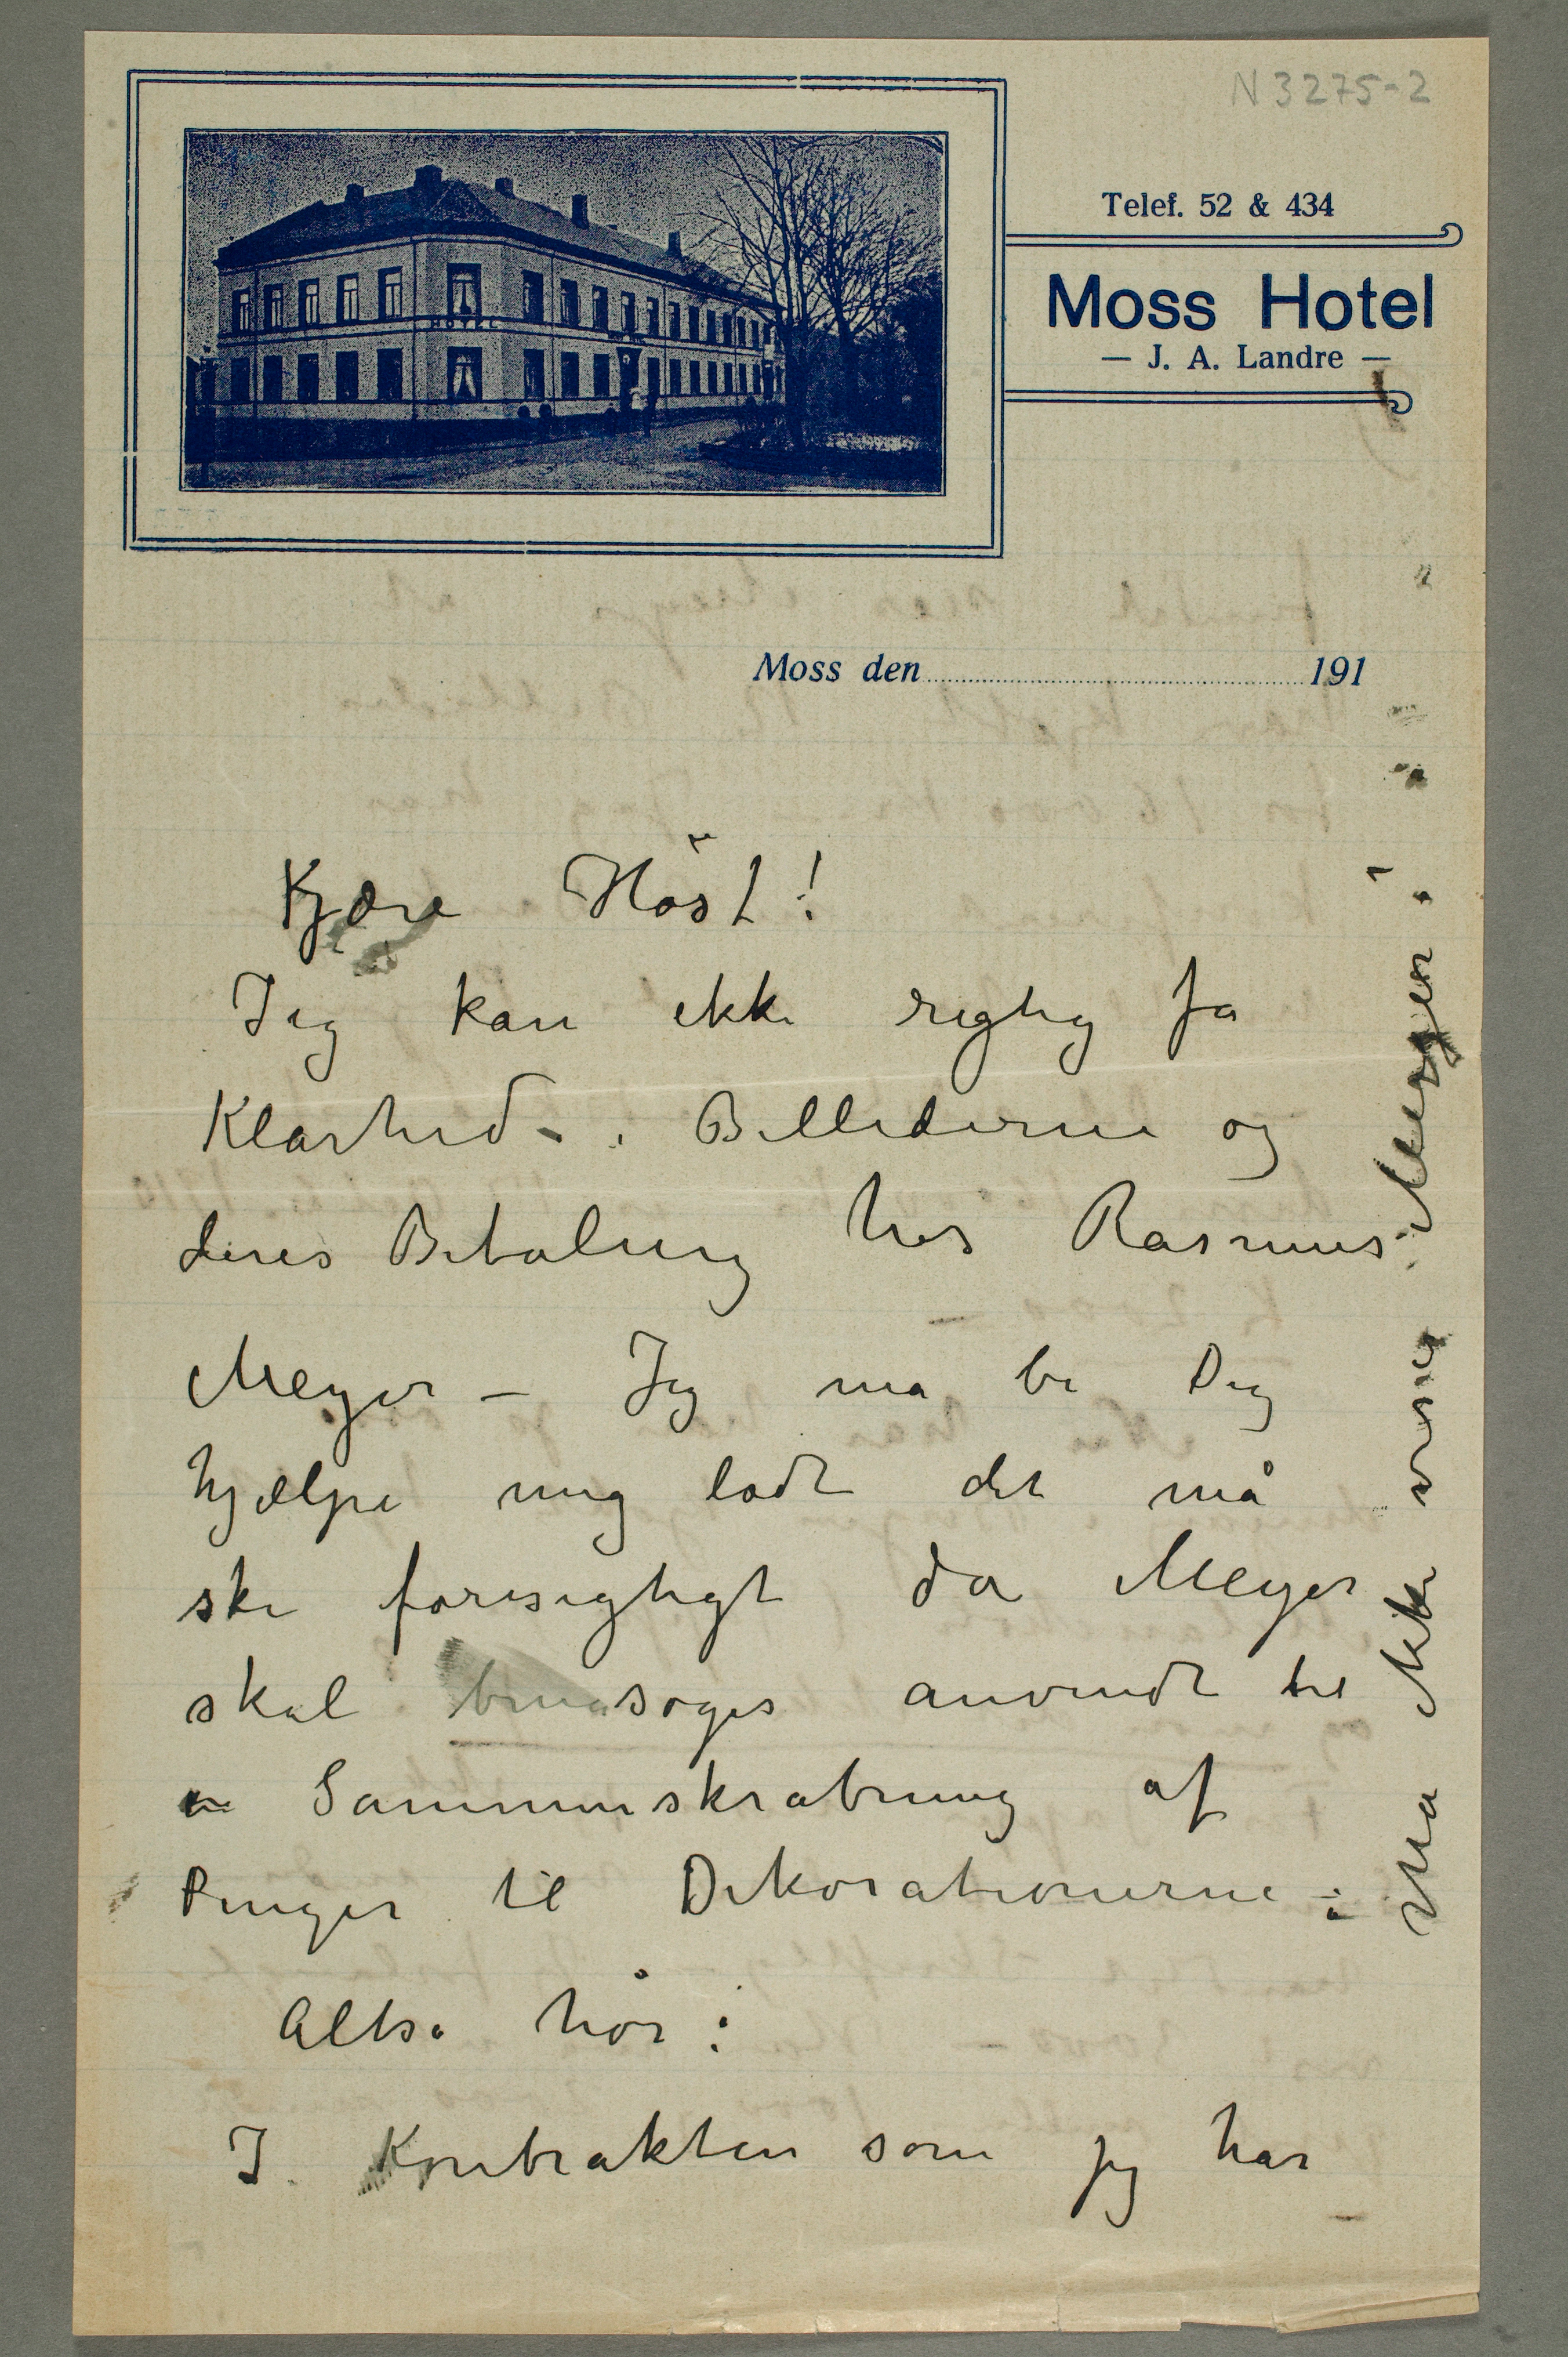 N 3275-2
Telef. 52 & 434
Moss Hotel
— J. A. Landre —
HOTEL
Moss den 191
Kjære Høst!
Jeg kan ikke rigtig få
Klarhed i Billederne og
deres Betaling hos Rasmus
Meyer – Jeg må be Dig
hjælpe mig ladt det må
ske forsigtigt da Meyer
skal søges anvendt til
en Sammenskrabning af
Penger til Dekorationerne –
Altså hør:
I Kontrakten som jeg har
Må ikke vises Meyer